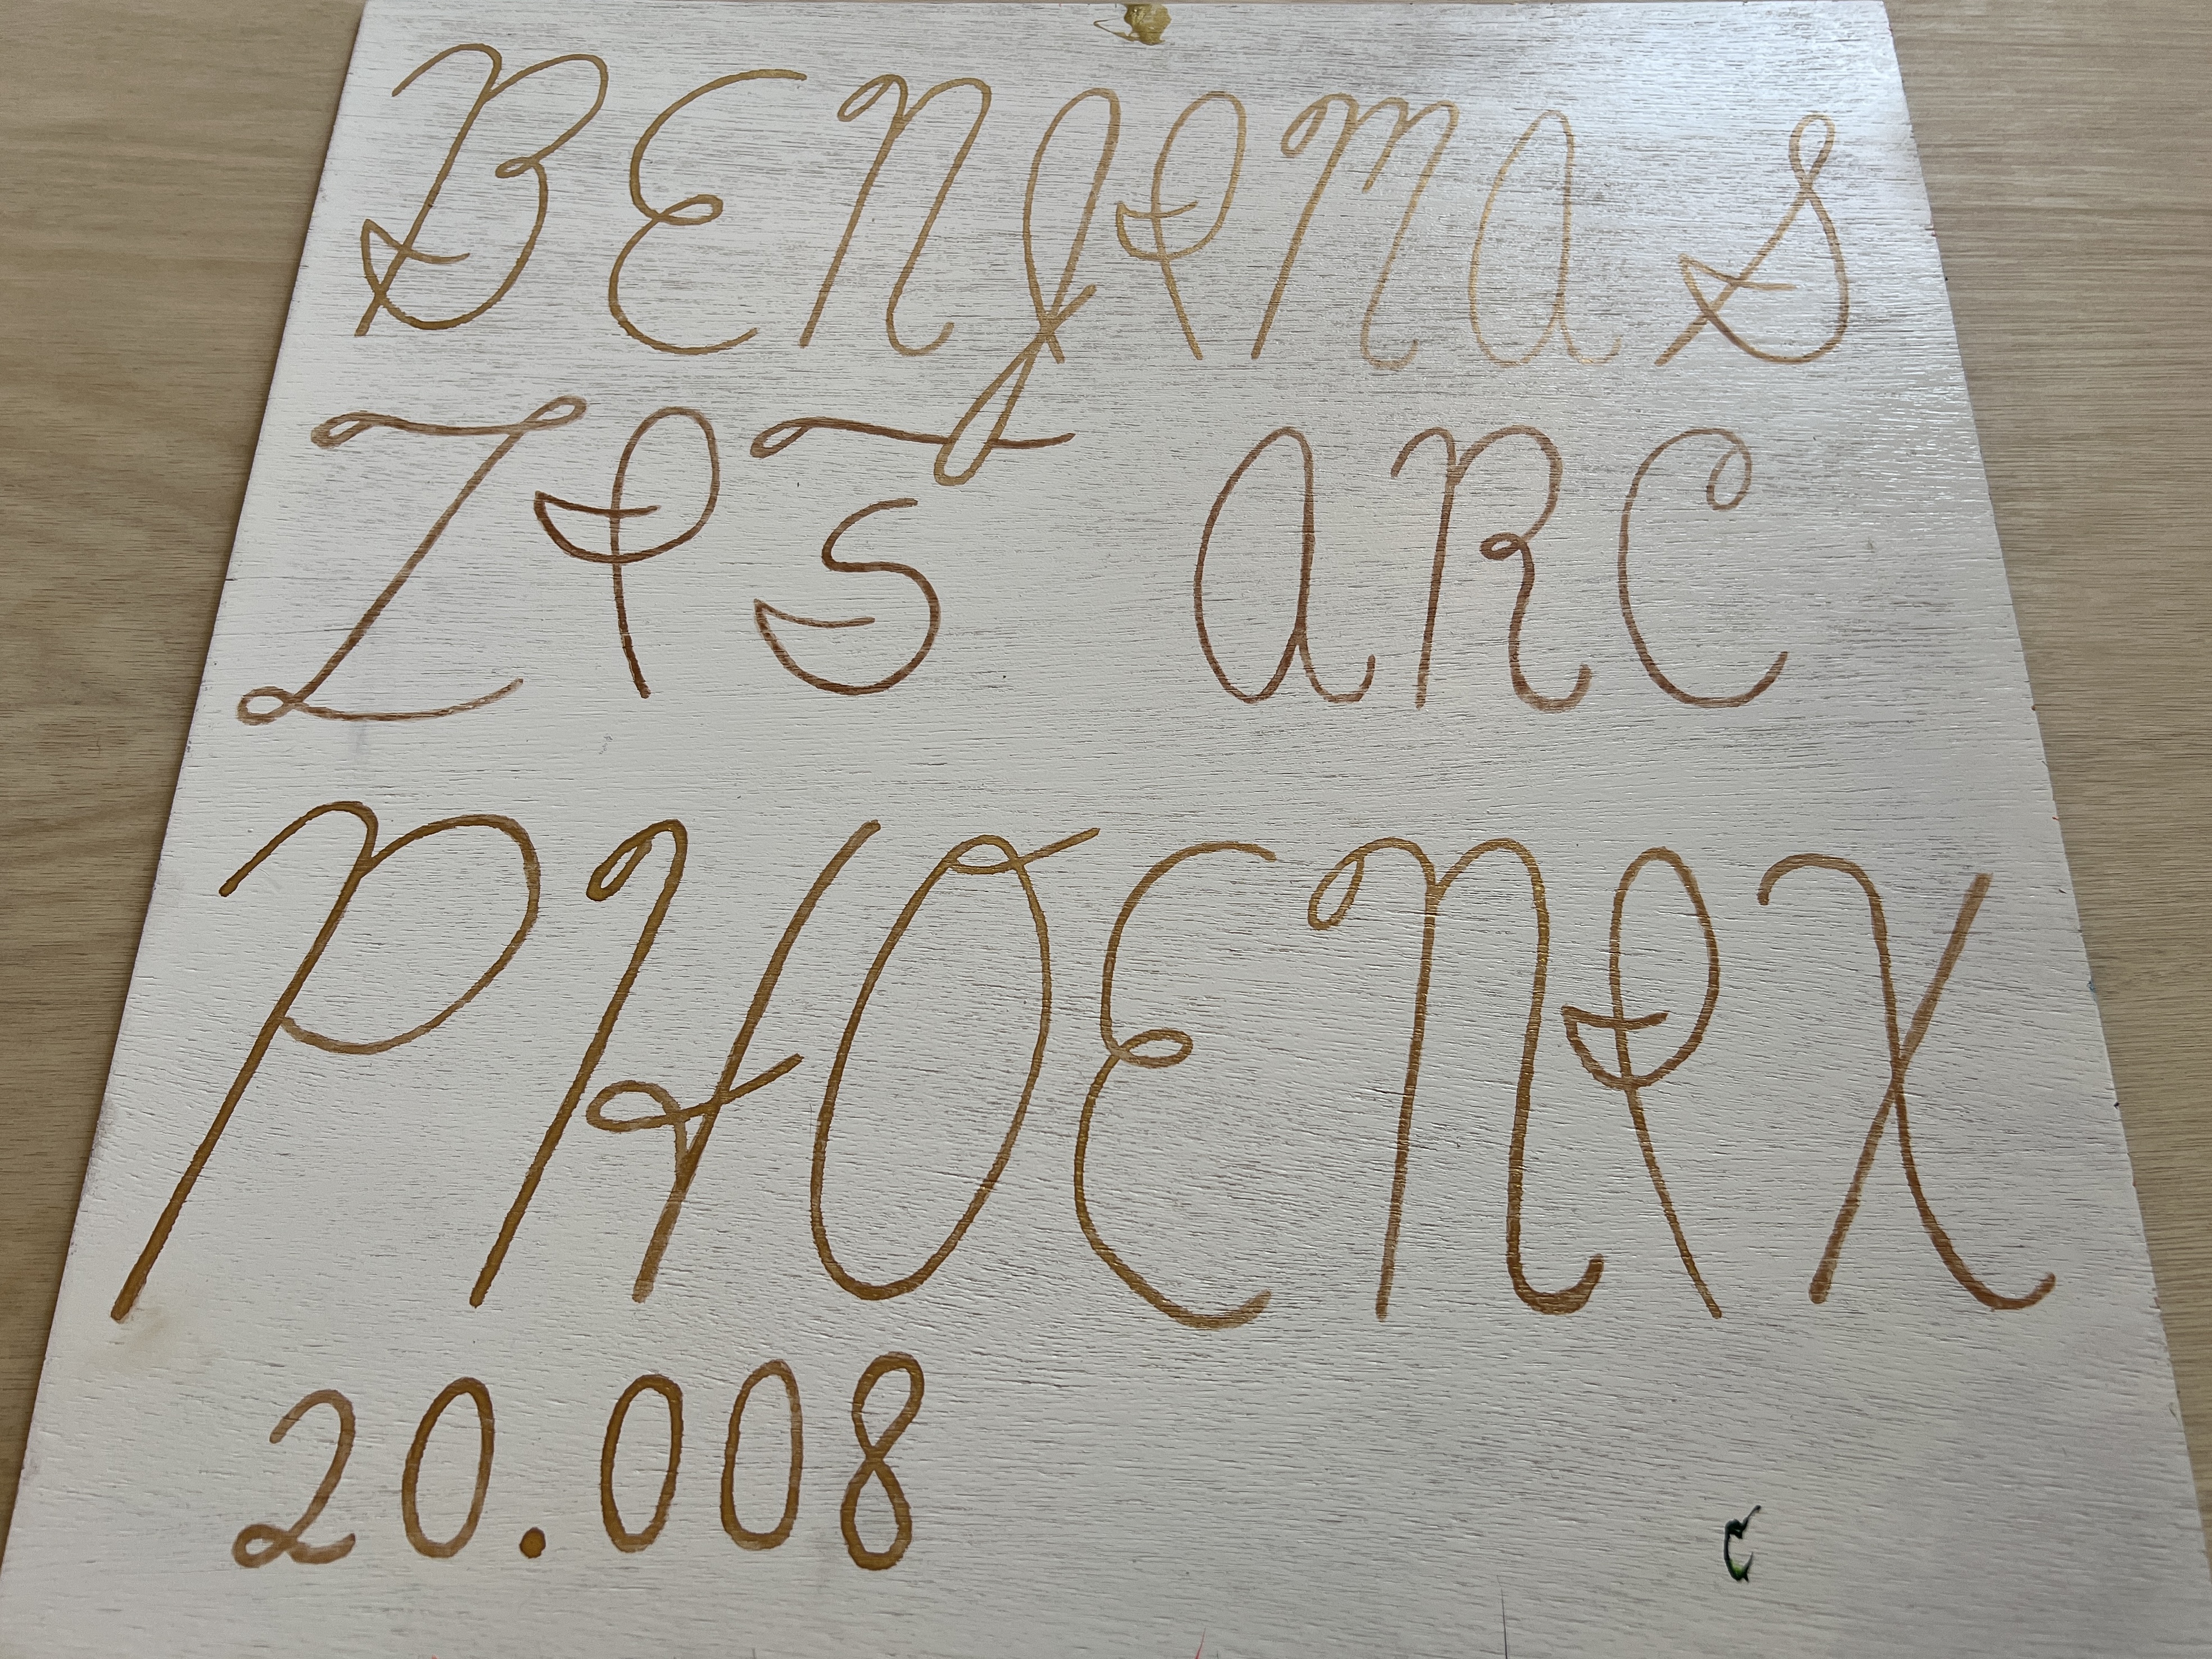 BENJIMAS
ARC
PHOENIX
20.008
C